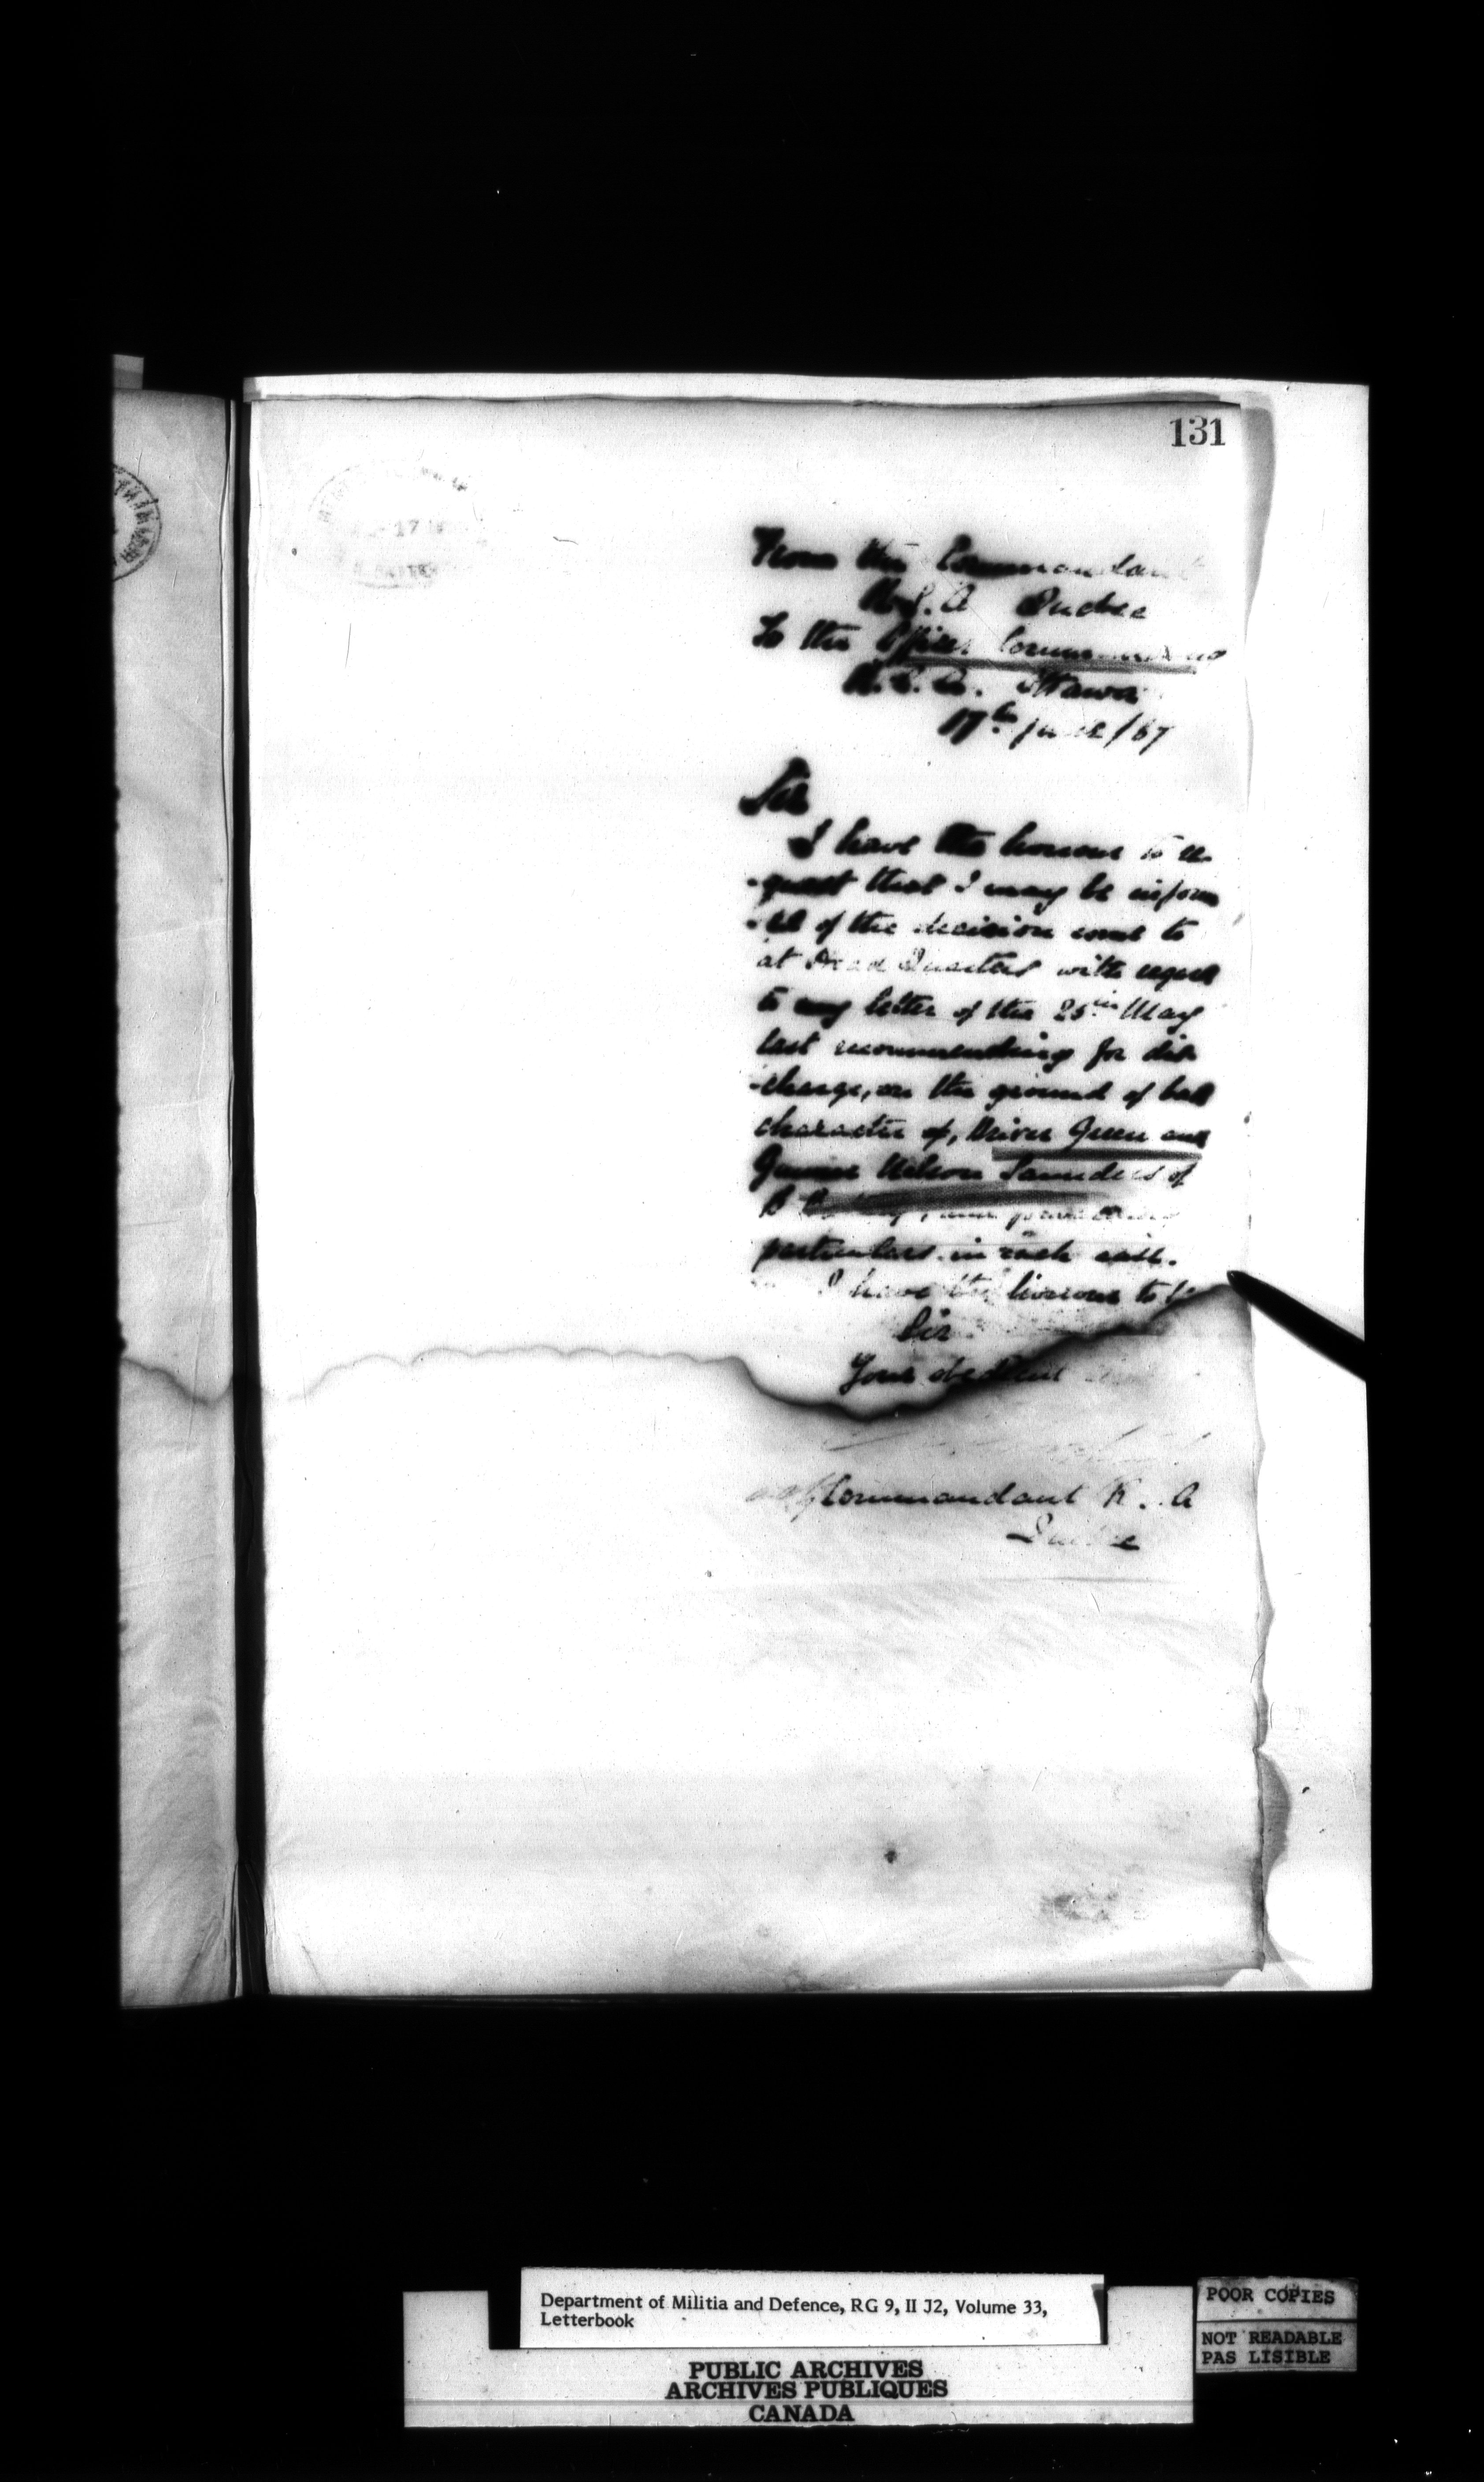 131
17
From the Commandant
R.S.A Quebec
To the Officer Commanding
Ottawa
17th June /87
Sir
I have the honour to re-
-quest that I may be inform
-ed of the decision come to
at Head Quarters with regard
to my letter of the 25th May
last recommending for dis
-charge, on the ground of bad
character of, Driver Green and
Gunner Wilson Saunders of
B
particulars in each case.
I have the honour to be
Sir
Your obedient
Commandant R. A
Quebec
Department of Militia and Defence, RG 9, II J2, Volume 33,
Letterbook
PUBLIC ARCHIVES
ARCHIVES PUBLIQUES
CANADA
POOR COPIES
NOT READABLE
PAS LISIBLE